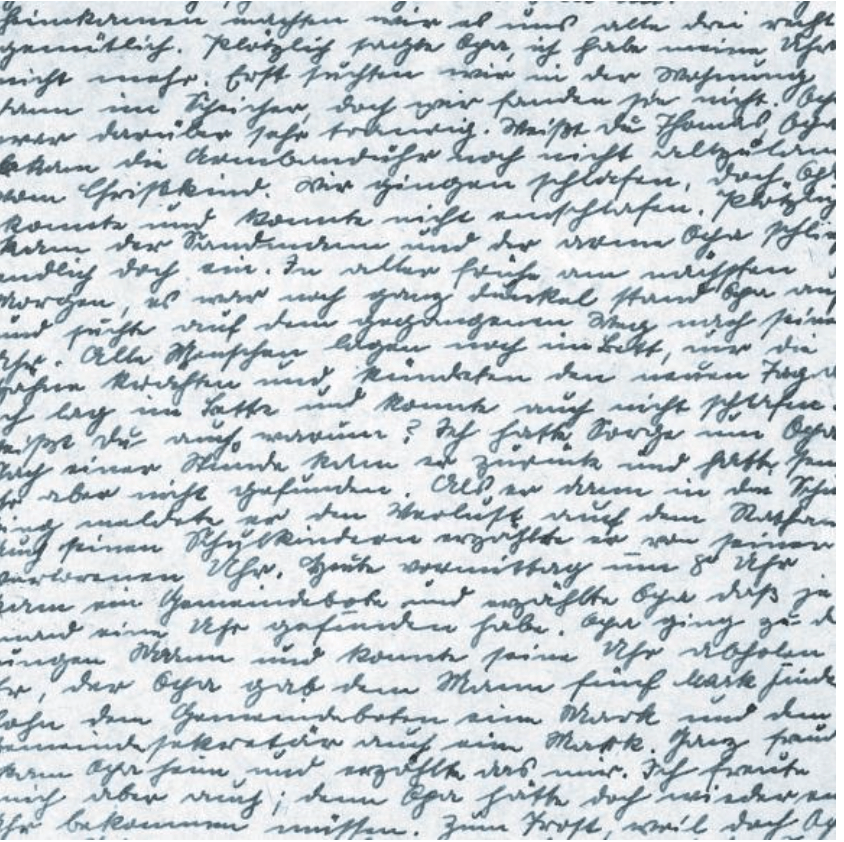 heimkamen machten wir es uns alle drei recht
gemütlich. Plötzlich sagte Opa, ich habe meine Uhr
nicht mehr. Erst suchten wir in der Wohnung
dann im Speicher, doch wir fanden sie nicht. Opa
war darüber sehr traurig. Weißt du Thomas, Opa
bekam die Armbanduhr noch nicht allzulan
vom Christkind. Wir gingen schlafen, doch Opa
konnte und konnte nicht einschlafen. Plötzlich
kam der Sandmann und der arme Opa schlief
endlich doch ein. In aller frühe am nächsten
Morgen, es war noch ganz dunkel stand Opa auf
und suchte auf dem gegangenen Weg nach seine
Uhr. Alle Menschen lagen noch im Bett, nur die
Hähne krähten und kündeten den neuen Tag a
ch lag im Bette und konnte auch nicht schlafen.
eißt du auch warum? Ich hatte Sorge um Opa
Nach einer Stunde kam er zurück und hatte sein
hr aber nicht gefunden. Als er dann in die Schu
ging meldete er den Verlust auf dem Rathau
Auch seinen Schulkindern erzählte er von seiner
verlorenen Uhr. Heute vormittag um 8 Uhr
kam ein Gemeindebote und erzählte Opa daß je
mand eine Uhr gefunden habe. Opa ging zu d
jungen Mann und konnte seine Uhr abholen
hr, der Opa gab dem Mann fünf Mark Finde
lohn dem Gemeindeboten eine Mark und dem
Gemeindesekretär auch eine Mark. Ganz freud
kam Opa heim und erzählte das mir. Ich freute
mich aber auch; denn Opa hätte doch wieder en
Uhr bekommen müssen. Zum Trost, weil doch Op